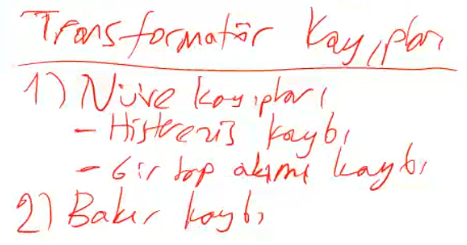 Transformatör Kayıpları
1) Nüve kayıpları
- Histerezis kaybı
- Girdap akımı kaybı
2) Bakır kaybı